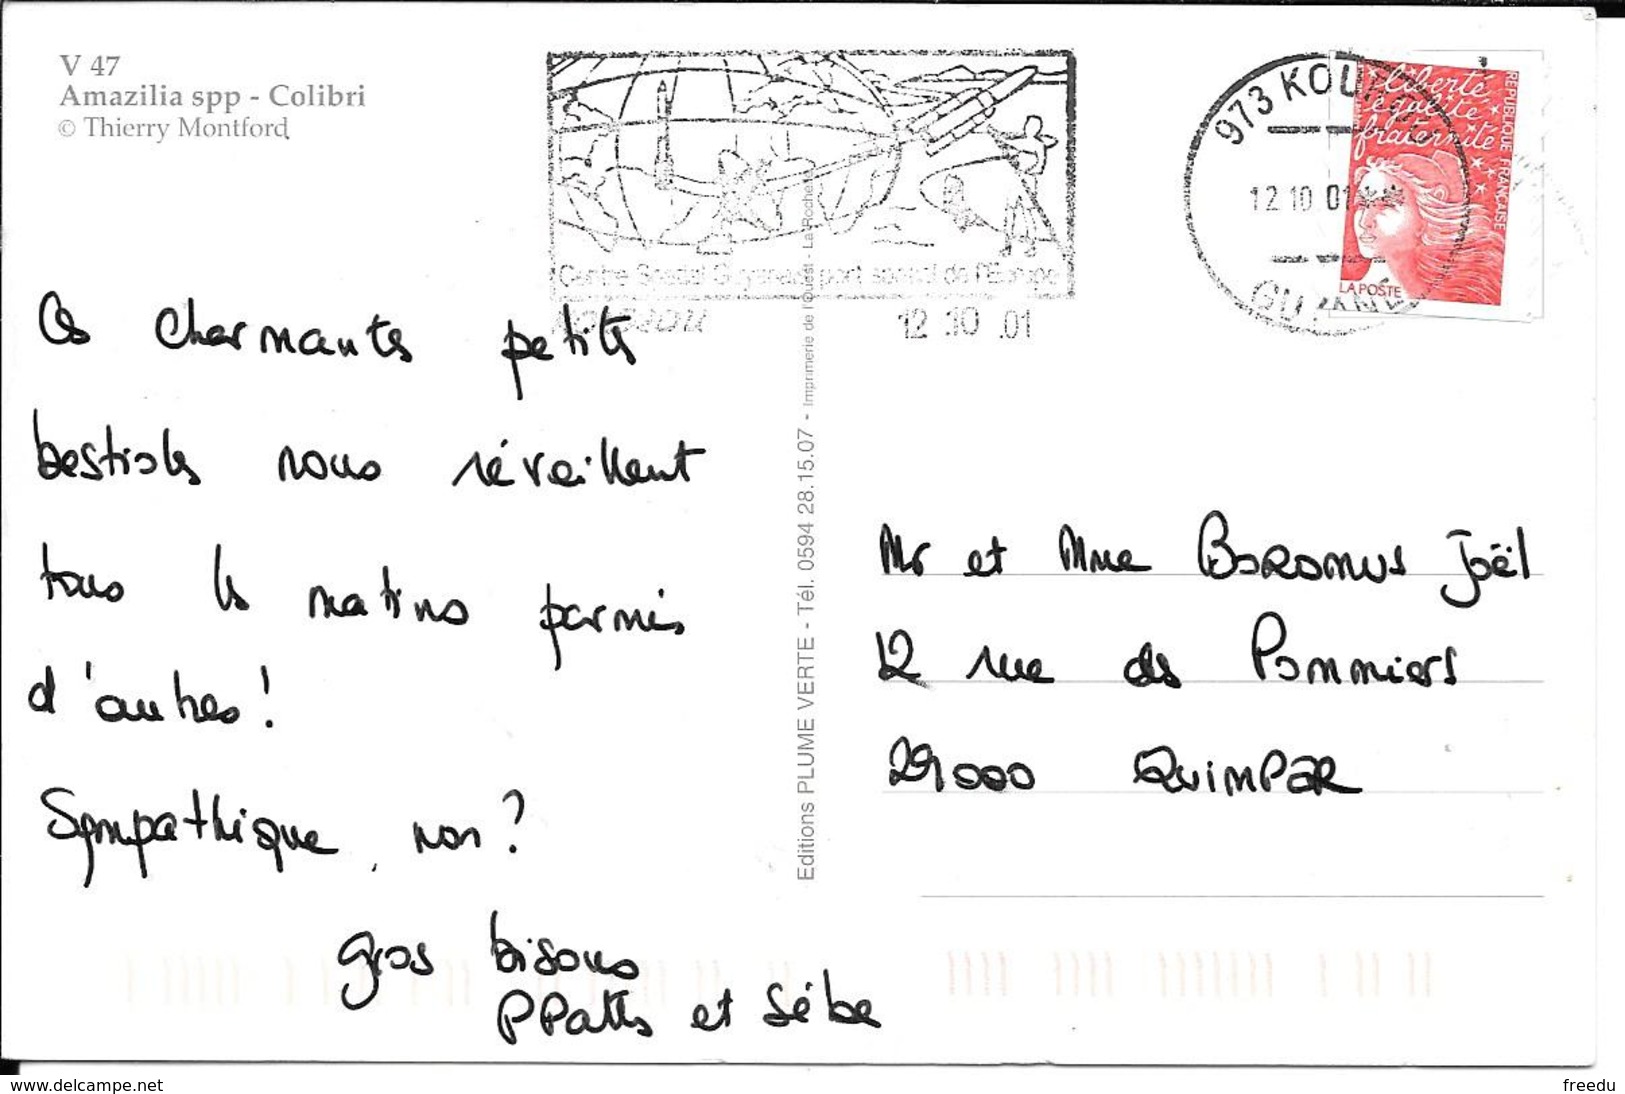 V 47
Amazilia spp - Colibri
© Thierry Montford
Centre Spatial Guyanais port spatial de l'Europe
KOUROU 12 10 01
973 KOUROU
12 10 01 **
GUYANE
liberté
égalité
fraternité
RÉPUBLIQUE FRANÇAISE
LA POSTE
Ces charmantes petites
bestioles nous réveillent
tous les matins parmis
d'autres !
Sympathique, non ?
gros bisous
PPatts et Sébe
Editions PLUME VERTE - Tél. 0594 28.15.07 - Imprimerie de l'Ouest - La Rochelle
Mr et Mme BOROMUS Joël
12 rue des Pommiers
29000 QUIMPER
www.delcampe.net
freedu